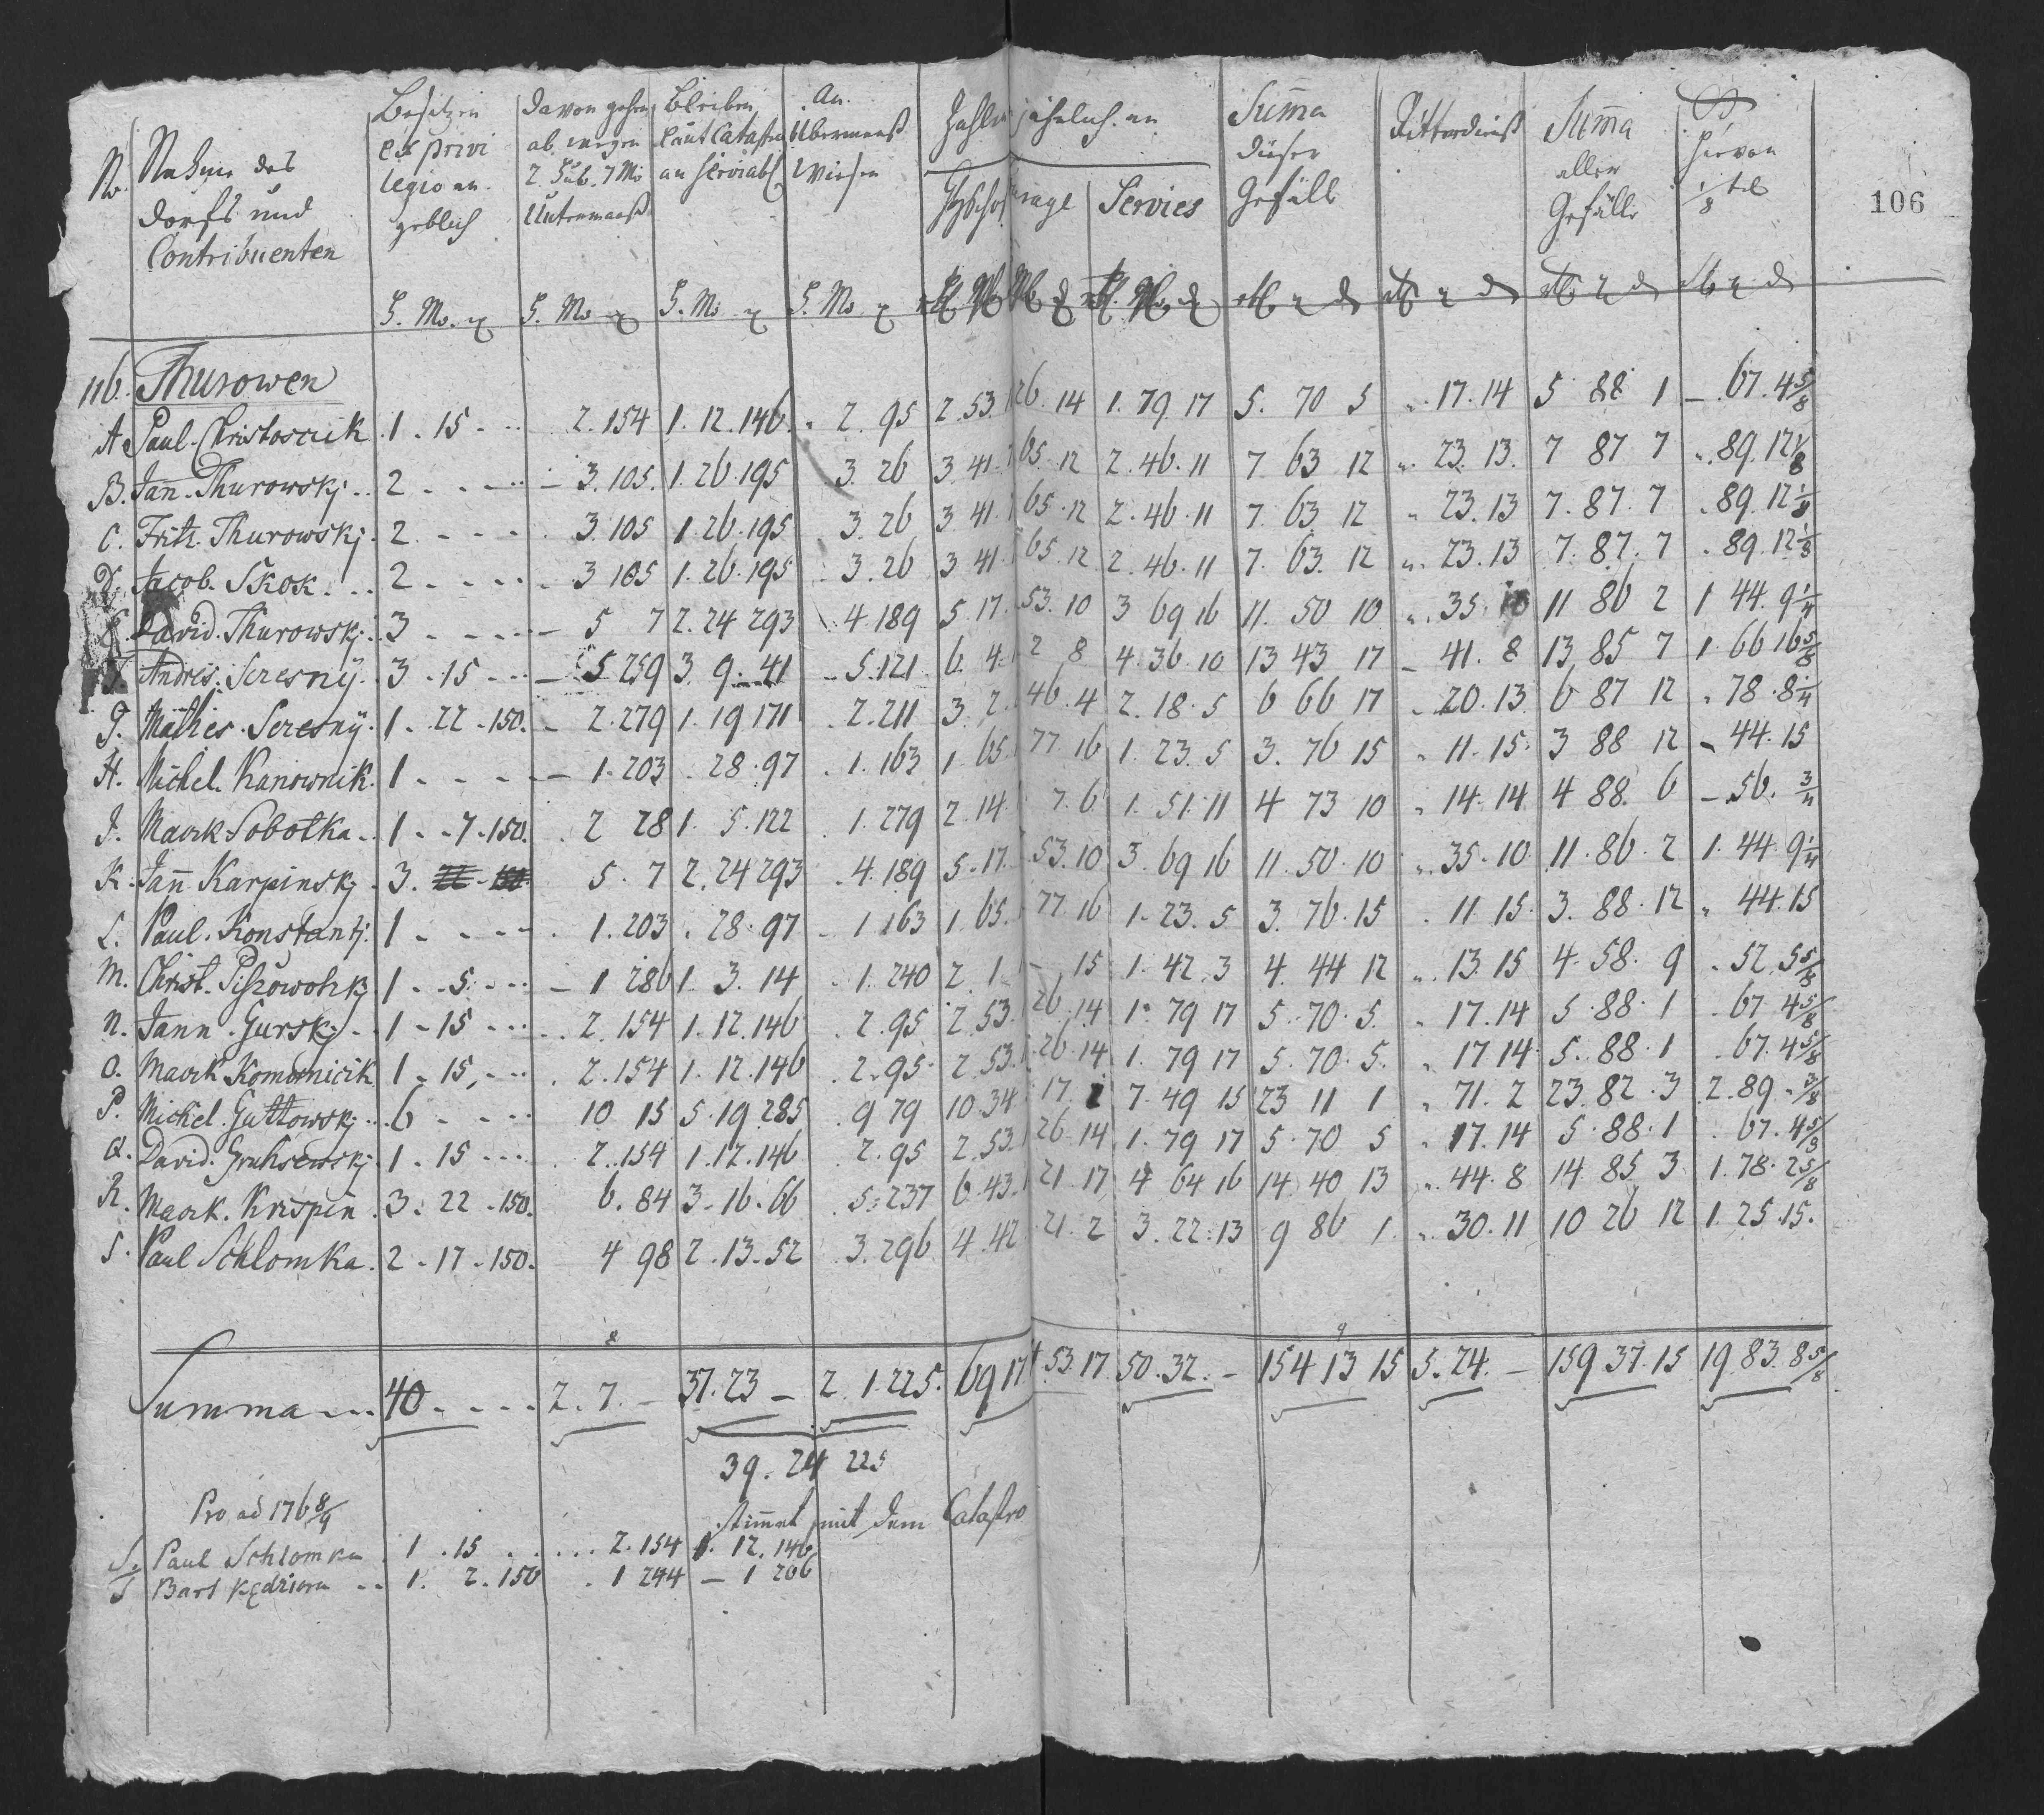 106
No. Nahme des Dorfs und Contribuenten
Besitzen ex privilegio angeblich
Davon gehen ab wegen 2 Hub. 7 Mo Untermaaß
Bleiben laut Catastro an
An Übermaaß Wiesen
Zahlen jährlich an
Servies
Summa dieser Gefälle
Ritterdienst
Summa aller Gefälle
hiervon 1/8 tel
116. Thurowen
A. Paul Christosciik . 1 . 15 . - 2.154 1.12.146 . 2.95 2.53. 26.14 1.79.17 5.70.5 „ 17.14 5 88 1 - 67.4 5/8
B. Jan̄ Thurowskj . . 2 - - - 3.105. 1.26.195 3.26 3.41. 65.12 2.46.11 7 63 12 „ 23.13. 7 87 7 „ 89.12 1/8
C. Fritz Thurowskj . 2 . - - - 3.105 1.26.195 . 3.26 3.41. 65.12 2.46.11 7.63.12 „ 23.13 7.87.7 . 89.12 1/8
D. Jacob Skok . . . 2 - - - 3 105 1.26.195 . 3.26 3 41. 65.12 2.46.11 7.63.12 „ 23.13 7.87.7 . 89.12 1/8
E. David Thurowskj . 3 - - - 5 7 2.24 293 . 4.189 5.17. 53.10 3 69 16 11.50 10 „ 35.10 11 86 2 1 44.9 1/4
F. Andres Seresnÿ . 3 . 15 - - 5 259 3.9.41 - 5.121 6.4. 2 8 4.36.10 13 43 17 - 41.8 13 85 7 1.66 16 5/8
G. Mathes Seresnÿ . 1 . 22 . 150. - 2.279 1.19 171 . 2.211 3.2. 46.4 2.18.5 6 66 17 . 20.13 6 87 12 „ 78.8 1/4
H. Michel Kanownik . 1 - - - 1.203 . 28.97 . 1.163 1.65. 77 16 1.23.5 3.76 15 „ 11.15. 3 88 12 - 44.15
J. Marck Sobotka . . 1 . . 7 . 150. . 2 28 1.5.122 . 1.279 2.14 7.6 1.51.11 4 73 10 „ 14.14 4 88.6 - 56. 3/4
K. Jan̄ Karpinskj . 3. 5.7 2.24 293 . 4.189 5.17. 53.10 3.69 16 11.50.10 „ 35.10 11.86.2 1.44.9 1/4
L. Paul Konstantj . 1 - - - 1.203 . 28.97 - 1 163 1.65. 77.16 1.23.5 3.76.15 . 11 15. 3.88.12 „ 44.15
M. Christ. 1 . . 5 . - - 1 286 1.3.14 . 1.240 2.1. - 15 1.42.3 4.44 12 „ 13.15 4.58.9 . 52.5 5/8
N. Jann Gurskj . . 1 - 15 - - 2.154 1.12.146 . 2.95 2.53. 26.14 1.79 17 5.70.5. . 17.14 5.88.1 . 67 4 5/8
O. Marck Komornicik 1 . 15 . - 2.154 1.12.146 . 2.95. 2.53. 26.14 1.79 17 5.70.5. „ 17 14 5.88.1 . 67.4 5/8
P. Michel Guttowskj . . 6 - - - 10 15 5.19.285 . 9 79 10.34 17. 2 7.49 15 23 11 1 „ 71.2 23.82.3 2.89. 3/8
Q. David 1 . 15 - - 2.154 1.12.146 . 2.95 2.53. 26.14 1.79 17 5.70 5 „ 17.14 5.88.1 . 67.4 5/8
R. Marck Krispin . 3 . 22 . 150. 6.84 3.16.66 . 5.237 6.43. 21.17 4 64 16 14 40 13 „ 44.8 14 85 3 1.78.2 5/8
S. Paul Schlomka . 2 . 17 . 150. 4 98 2.13.52 . 3.296 4.42 21.2 3.22.13 9 86 1. „ 30.11 10 26 12 1.25.15.
Summa . . . 40 . - - - 2.7. - 37.23 - 2.1.225. 69 17 53.17 50.32. - 154 13 15 5.24. - 159.37.15 19.83.8 5/8
39 . 24 225
stimmt mit dem Catastro
Pro ad 176 8/9
S. Paul Schlomka . 1 . 15 . . . 2.154 1.12.146
T Bart . . 1. 2.150 . 1 244 - 1 206